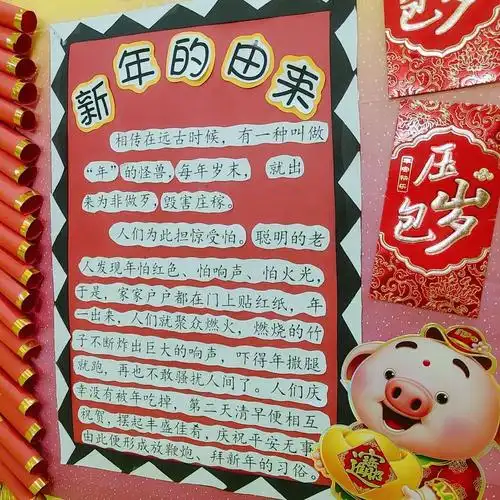 新年的由来
相传在远古时候，有一种叫做
“年”的怪兽，每年岁末，就出
来为非做歹，毁害庄稼。
人们为此担惊受怕。聪明的老
人发现年怕红色、怕响声、怕火光，
于是，家家户户都在门上贴红纸，年
一出来，人们就聚众燃火，燃烧的竹
子不断炸出巨大的响声，吓得年撒腿
就跑，再也不敢骚扰人间了。人们庆
幸没有被年吃掉，第二天清早便相互
祝贺，摆起丰盛佳肴，庆祝平安无事，
由此便形成放鞭炮、拜新年的习俗。
包岁
压岁包